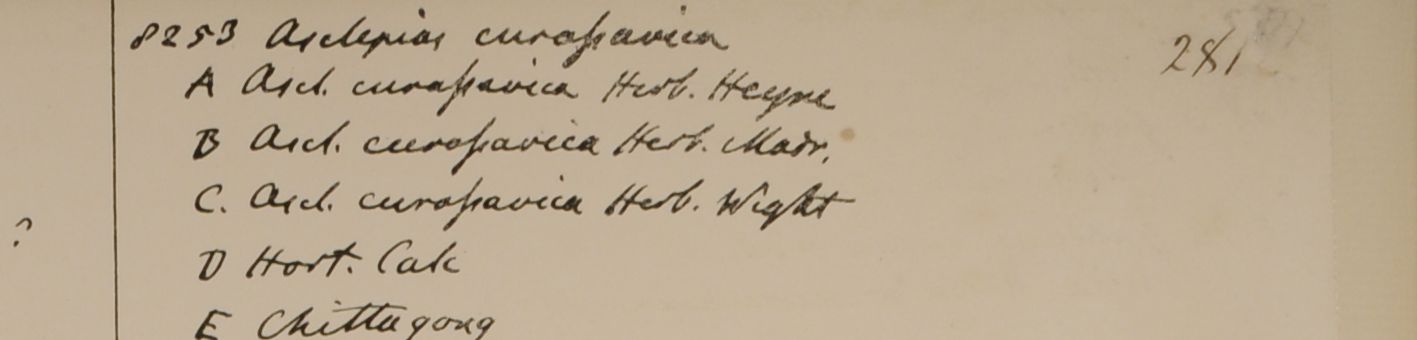 8253 Asclepias curaſsavica
281
A Ascl. curaſsavica Herb. Heyne
B Ascl. curaſsavica Herb. Madr.
C. Ascl. curaſsavica Herb. Wight
?
D Hort. Calc
E Chittagong